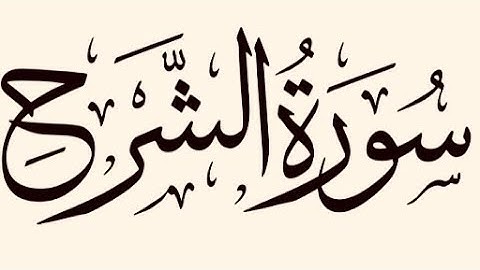 سُورَةُ الشَّرَحِ